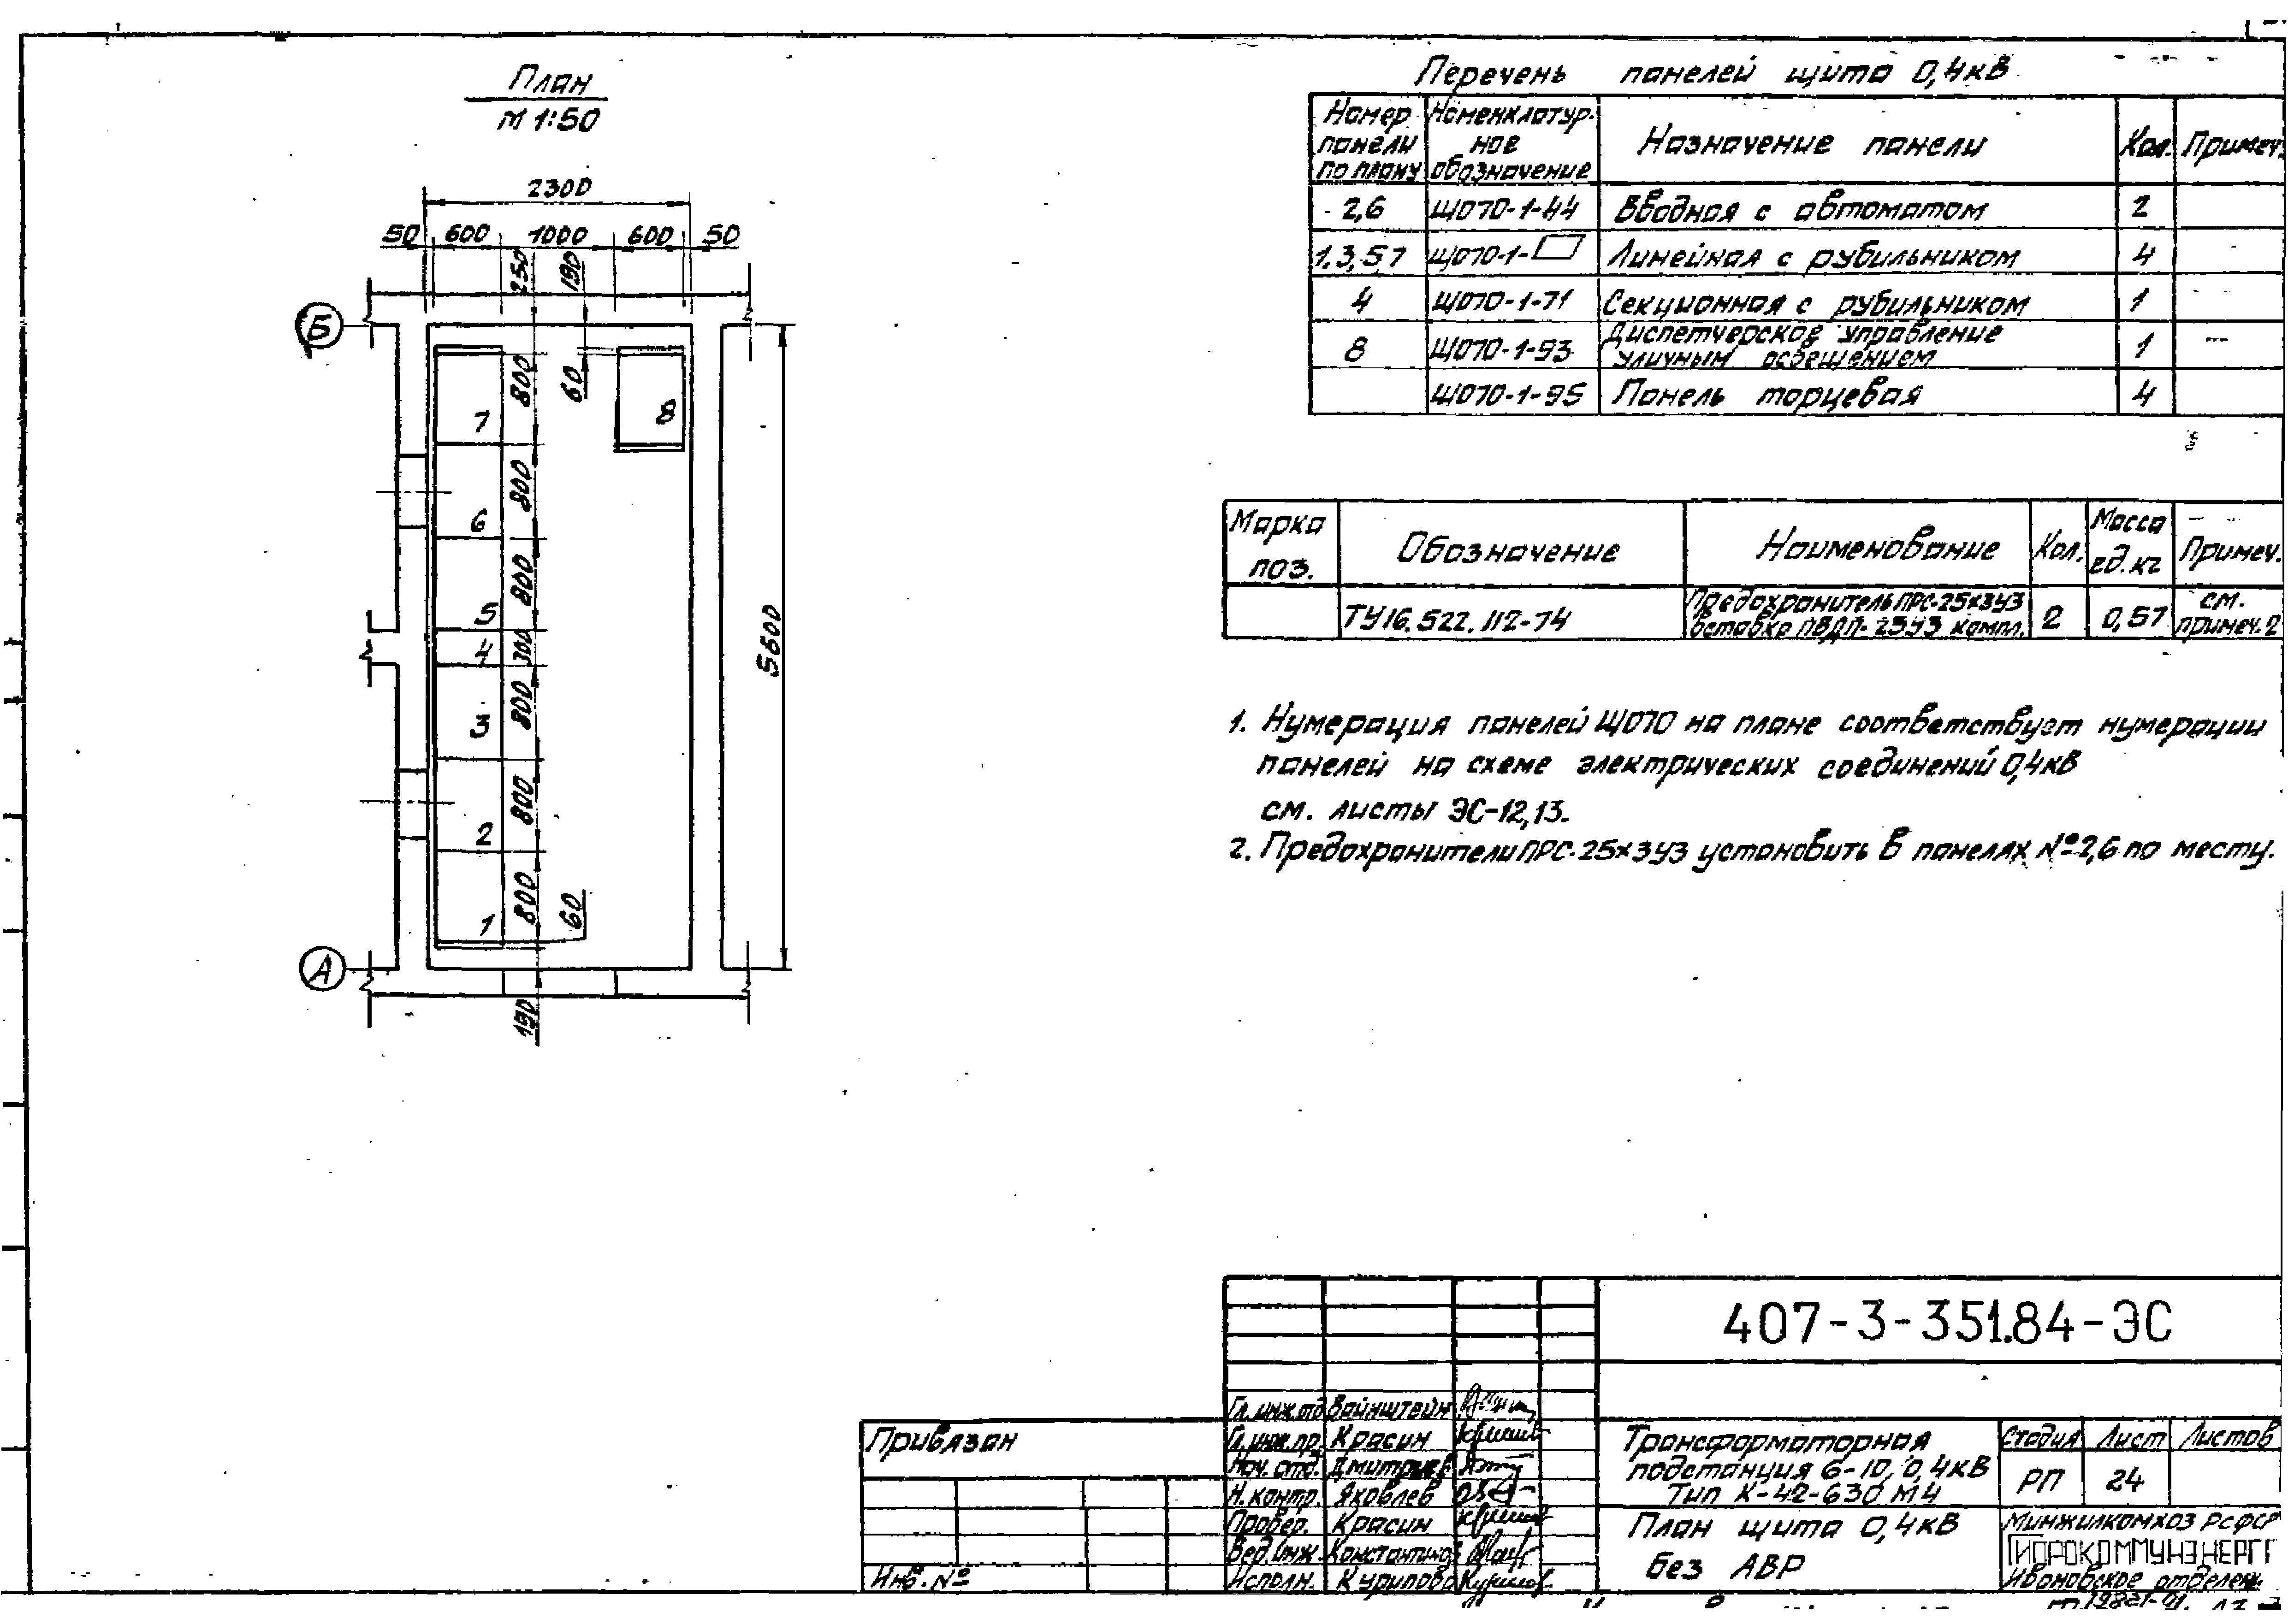 План
М 1:50
2300
50 600 1000 600 50
250 190
Б
800 60
7 8
800
6
800
5
4 300
5600
3 800
2 800
1 800 60
А
190
Перечень панелей щита 0,4кВ
Номер панели по плану Номенклатурное обозначение Назначение панели Кол. Примеч.
2,6 ЩО70-1-44 Вводная с автоматом 2
1,3,5,7 ЩО70-1- Линейная с рубильником 4
4 ЩО70-1-71 Секционная с рубильником 1
8 ЩО70-1-93 Диспетчерское управление уличным освещением 1
ЩО70-1-95 Панель торцевая 4
Марка поз. Обозначение Наименование Кол. Масса ед.кг Примеч.
ТУ16.522.112-74 Предохранитель ПРС-25×3У3 вставка ПВДП-25У3 компл. 2 0,57 см. примеч.2
1. Нумерация панелей ЩО70 на плане соответствует нумерации
панелей на схеме электрических соединений 0,4кВ
см. листы ЭС-12,13.
2. Предохранители ПРС-25×3У3 установить в панелях №2,6 по месту.
407-3-351.84-ЭС
Привязан
Инв.№
Гл.инж.отд Вайнштейн
Гл.инж.пр. Красин
Нач. отд. Дмитриев
Н.контр. Яковлев
Провер. Красин
Вед.инж. Константинов
Исполн. Курилова
Трансформаторная
подстанция 6-10/0,4кВ
Тип К-42-630 М4
Стадия Лист Листов
РП 24
План щита 0,4кВ
без АВР
Минжилкомхоз РСФСР
ГИПРОКОММУНЭНЕРГО
Ивановское отделен.